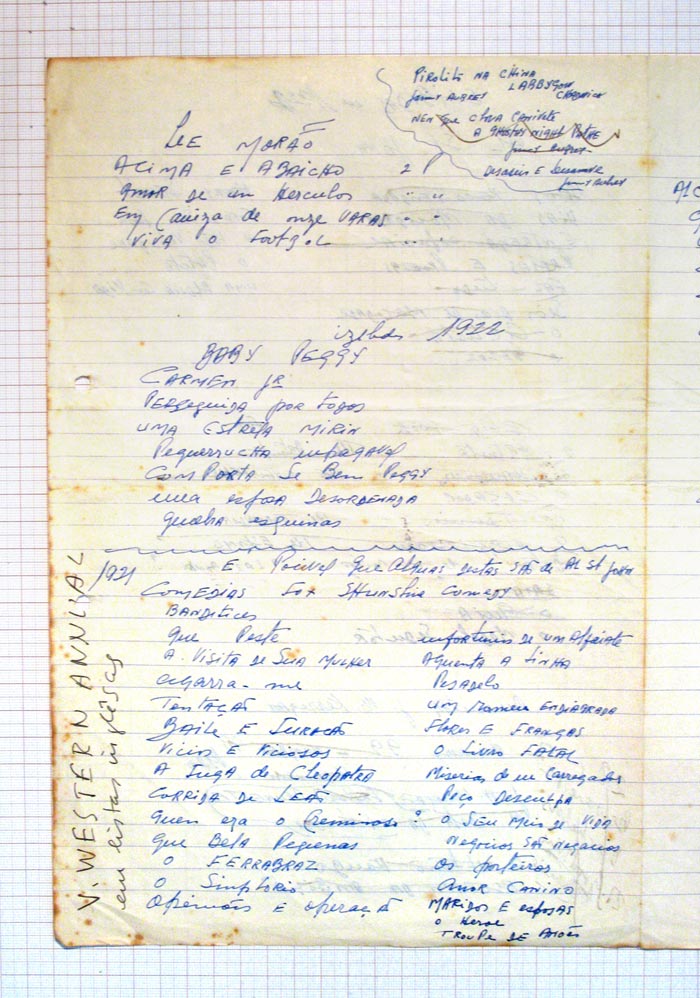 PIROLITO NA CHINA
LARRYSON
JIMMY AUBREY
NEM QUE CHOVA CANIVETE
A GHOSTOS NIGHT
JIMMY AUBREY
DESARES E
JIMMY AUBREY
LEE MORÃO
ACIMA E ABAICHO 2 P
AMOR DE UM HERCULOS " "
Em Camiza de onze VARAS " "
VIVA O FootgoL " "
1922
BABY PEGGY
CARMEN JR
PERSEGUIDA POR TODOS
UMA ESTRELA MIRIN
Pequerrucha impagavel
COMPORTA SE BEM PEGGY
uma esposa DESORDENADA
quebra esquinas
1921 E Posivel que Alguas destas SÃO de AL St JOHN
COMEDIAS FOX SHunshine Comedy
BANDITICES
Que Peste
A VISITA DE SUA MULHER
agarra-me
TENTAÇÃO
BAILE E SURACÃO
VICIOS E VICIOSOS
A Fuga de Cleopatra
CORRIDA DE LEÃO
Quem era o Creminoso ?
que Bela Pequenas
O FERRABRAZ
O Simplorio
Openioēs e operaçã
infortunio de um Alfaiate
AGUENTA A LINHA
PESADELO
UM Homem ENDIABRADA
FLORES E FRANGAS
O LIVRO FATAL
Miserias de um Carregador
Peço Desculpa
O SEU MEIO DE VIDA
Negocios SÃO Negocios
Os porteiros
Amor CANINO
MARIDOS E esposas
O Heroe
TROUPE DE
V. WESTERN ANNUAL
em listas inglêsas